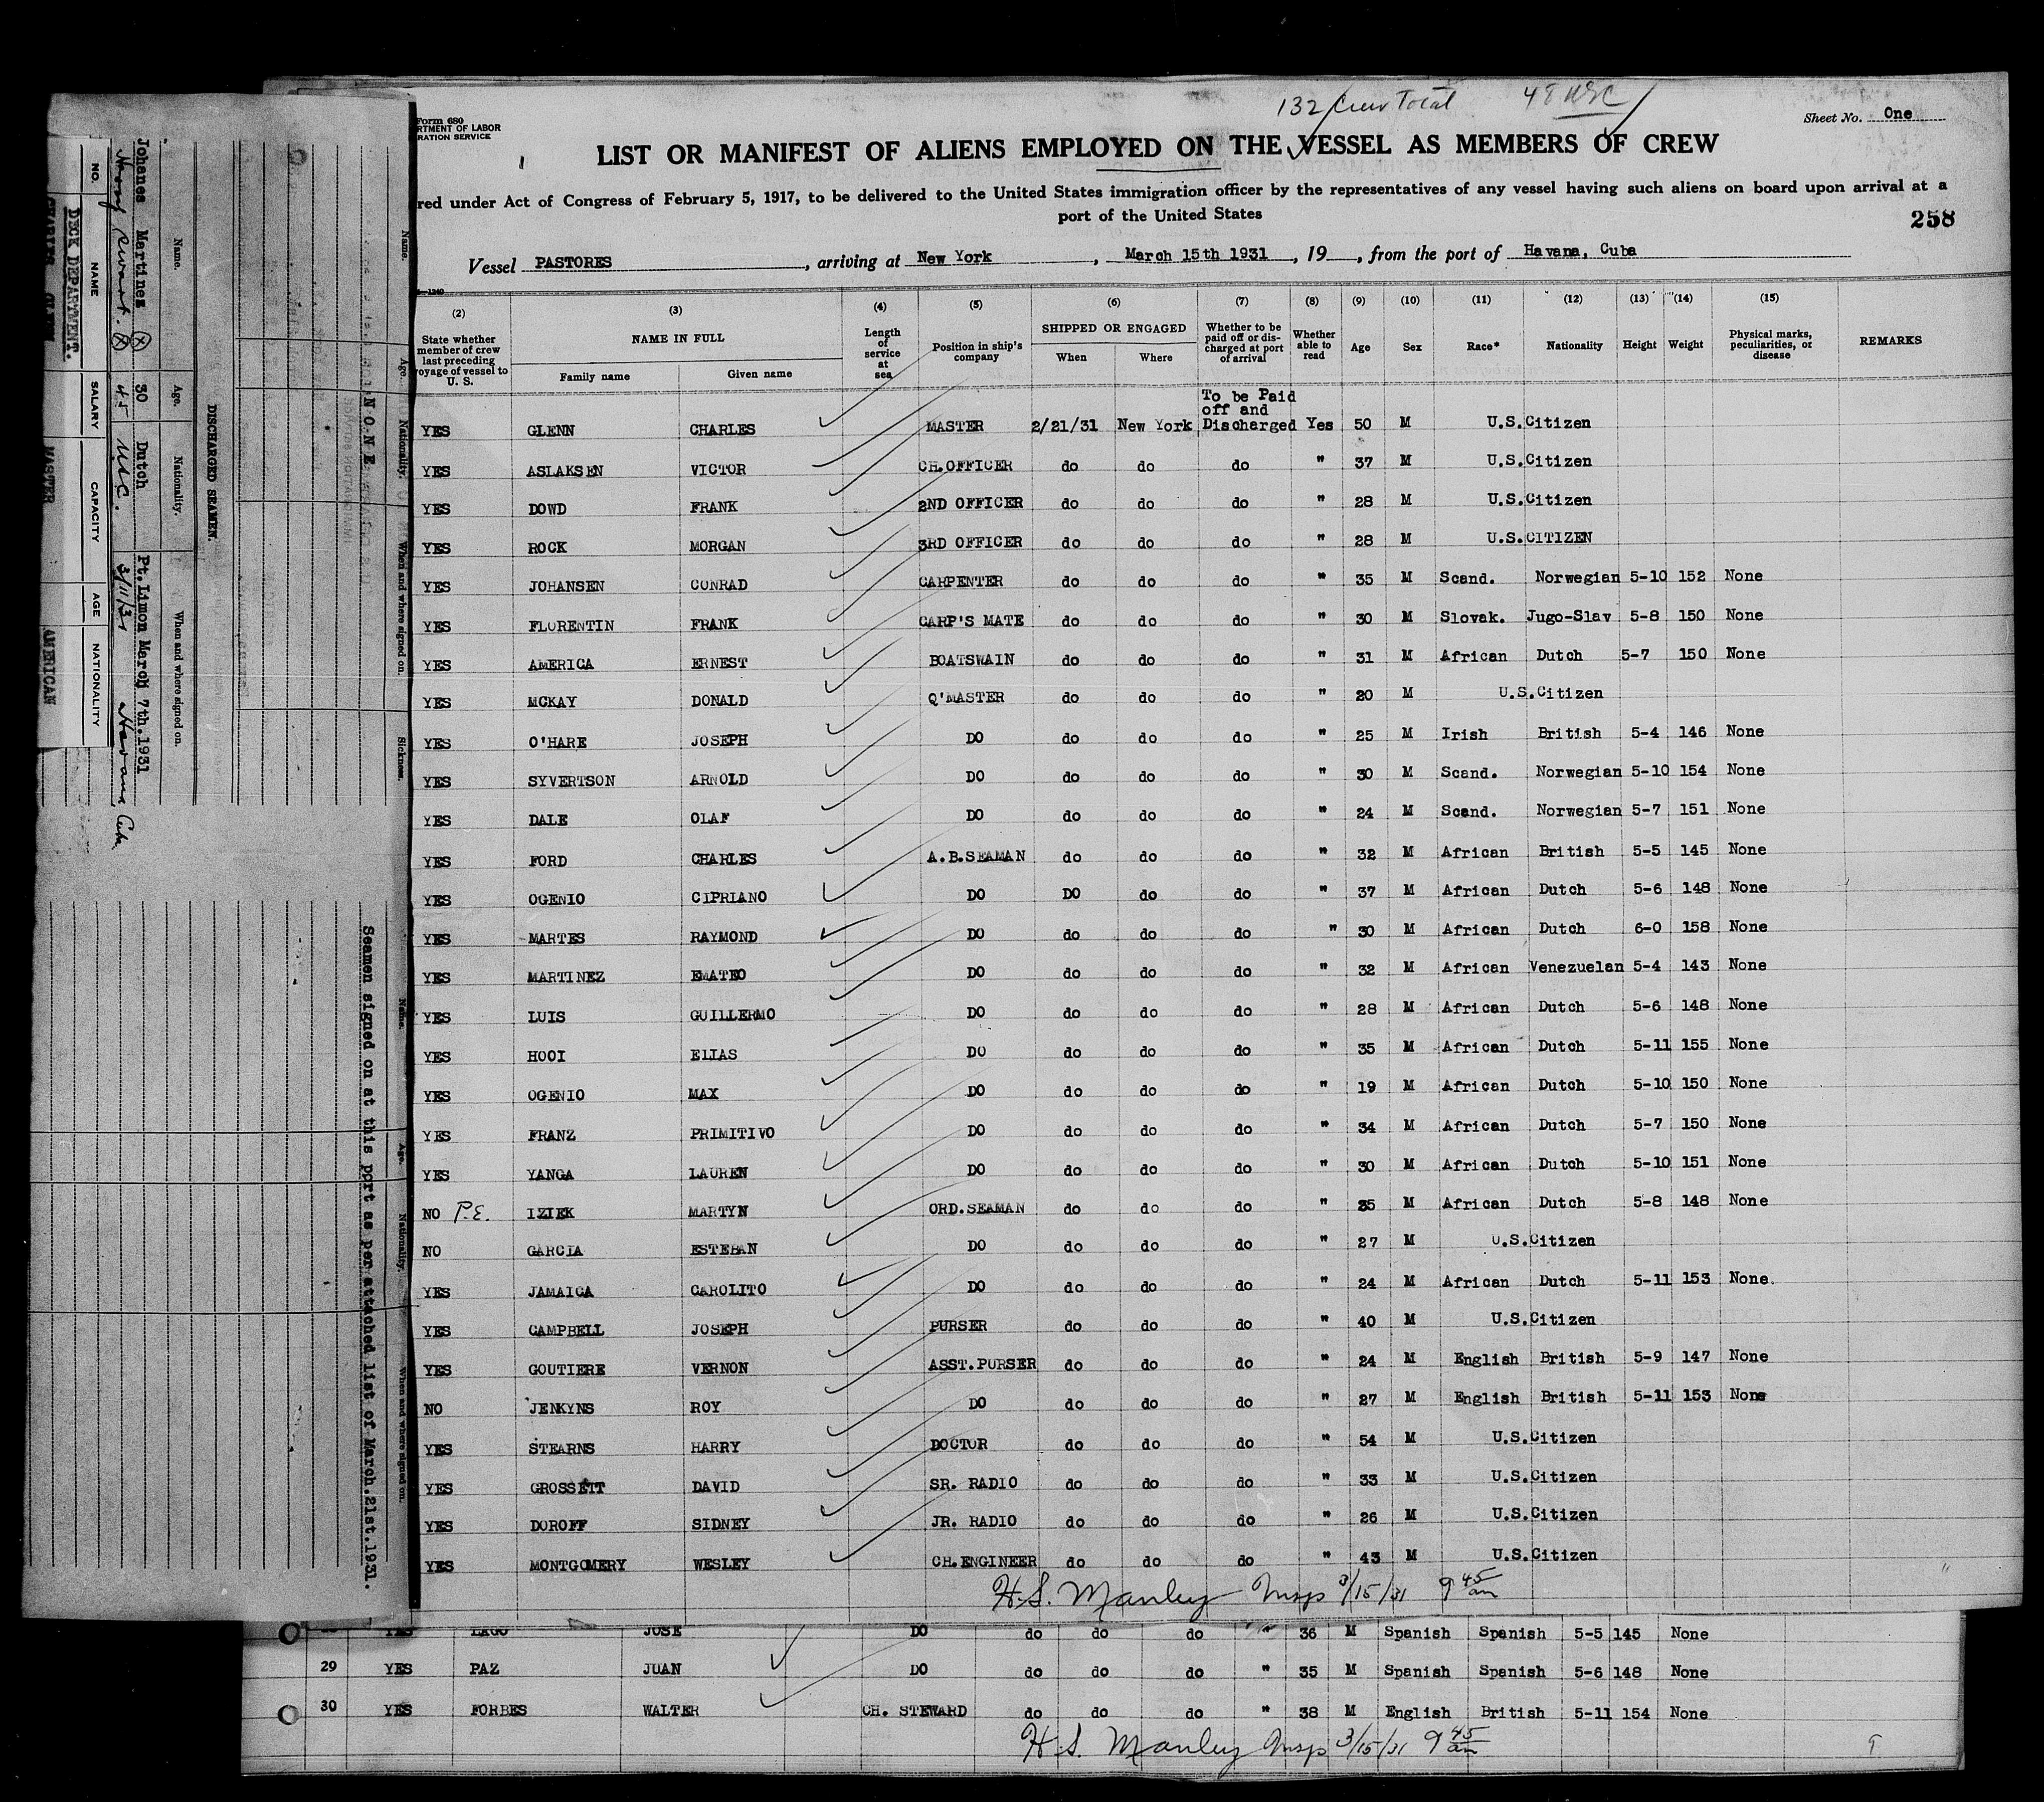 132 Crew Total 48 USC
Form 680
RTMENT OF LABOR
RATION SERVICE
Sheet No. One
LIST OR MANIFEST OF ALIENS EMPLOYED ON THE VESSEL AS MEMBERS OF CREW
red under Act of Congress of February 5, 1917, to be delivered to the United States immigration officer by the representatives of any vessel having such aliens on board upon arrival at a
port of the United States
258
Vessel PASTORES, arriving at New York, March 15th 1931, 19, from the port of Havana, Cuba
(2) State whether member of crew last preceding voyage of vessel to U. S. (3) NAME IN FULL Family name Given name (4) Length of service at sea (5) Position in ship's company (6) SHIPPED OR ENGAGED When Where (7) Whether to be paid off or discharged at port of arrival (8) Whether able to read (9) Age (10) Sex (11) Race* (12) Nationality (13) Height (14) Weight (15) Physical marks, peculiarities, or disease REMARKS
YES GLENN CHARLES MASTER 2/21/31 New York To be Paid off and Discharged Yes 50 M U.S.Citizen
YES ASLAKSEN VICTOR CH.OFFICER do do do " 37 M U.S.Citizen
YES DOWD FRANK 2ND OFFICER do do do " 28 M U.S.Citizen
YES ROCK MORGAN 3RD OFFICER do do do " 28 M U.S.CITIZEN
YES JOHANSEN CONRAD CARPENTER do do do " 35 M Scand. Norwegian 5-10 152 None
YES FLORENTIN FRANK CARP'S MATE do do do " 30 M Slovak. Jugo-Slav 5-8 150 None
YES AMERICA ERNEST BOATSWAIN do do do " 31 M African Dutch 5-7 150 None
YES MCKAY DONALD Q'MASTER do do do " 20 M U.S.Citizen
YES O'HARE JOSEPH DO do do do " 25 M Irish British 5-4 146 None
YES SYVERTSON ARNOLD DO do do do " 30 M Scand. Norwegian 5-10 154 None
YES DALE OLAF DO do do do " 24 M Scand. Norwegian 5-7 151 None
YES FORD CHARLES A.B.SEAMAN do do do " 32 M African British 5-5 145 None
YES OGENIO CIPRIANO DO DO do do " 37 M African Dutch 5-6 148 None
YES MARTES RAYMOND DO do do do " 30 M African Dutch 6-0 158 None
YES MARTINEZ EMATEO DO do do do " 32 M African Venezuelan 5-4 143 None
YES LUIS GUILLERMO DO do do do " 28 M African Dutch 5-6 148 None
YES HOOI ELIAS DO do do do " 35 M African Dutch 5-11 155 None
YES OGENIO MAX DO do do do " 19 M African Dutch 5-10 150 None
YES FRANZ PRIMITIVO DO do do do " 34 M African Dutch 5-7 150 None
YES YANGA LAUREN DO do do do " 30 M African Dutch 5-10 151 None
NO P.E. IZIEK MARTYN ORD.SEAMAN do do do " 35 M African Dutch 5-8 148 None
NO GARCIA ESTEBAN DO do do do " 27 M U.S.Citizen
YES JAMAICA CAROLITO DO do do do " 24 M African Dutch 5-11 153 None.
YES CAMPBELL JOSEPH PURSER do do do " 40 M U.S.Citizen
YES GOUTIERE VERNON ASST.PURSER do do do " 24 M English British 5-9 147 None
NO JENKYNS ROY DO do do do " 27 M English British 5-11 153 None
YES STEARNS HARRY DOCTOR do do do " 54 M U.S.Citizen
YES GROSSETT DAVID SR. RADIO do do do " 33 M U.S.Citizen
YES DOROFF SIDNEY JR. RADIO do do do " 26 M U.S.Citizen
YES MONTGOMERY WESLEY CH.ENGINEER do do do " 43 M U.S.Citizen
H.S. Manley Insp 3/15/31 9 45 am
YES LAGO JOSE DO do do do " 36 M Spanish Spanish 5-5 145 None
29 YES PAZ JUAN DO do do do " 35 M Spanish Spanish 5-6 148 None
30 YES FORBES WALTER CH. STEWARD do do do " 38 M English British 5-11 154 None
H.S. Manley Insp 3/15/31 9 45 am
Name. Age. Nationality. When and where signed on. Sickness.
NONE
DISCHARGED SEAMEN.
Name. Age. Nationality. When and where signed on.
Johanes Martines 30 Dutch Pt.Limon March 7th.1931
45 USC. 3/11/31 Havana Cuba
NO. NAME SALARY CAPACITY AGE NATIONALITY
DECK DEPARTMENT.
MASTER AMERICAN
Name. Age. Nationality. When and where signed on.
Seamen signed on at this port as per attached list of March.21st.1931.